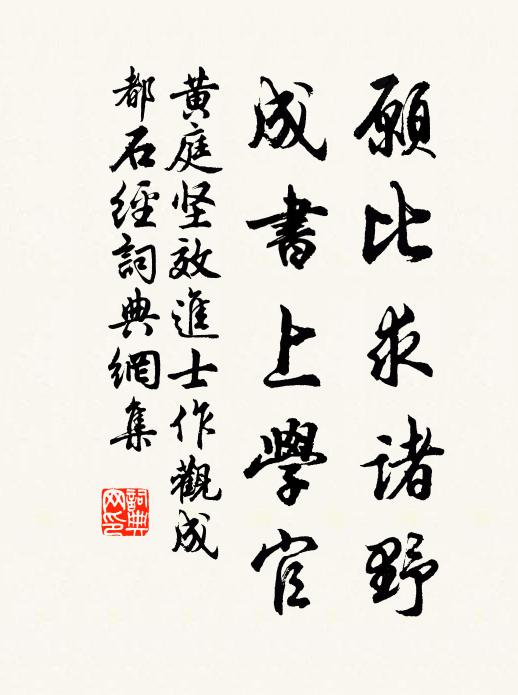 願比求諸野
成書上學官
黄庭坚效進士作觀成
都石經詞典網集
詞典网印